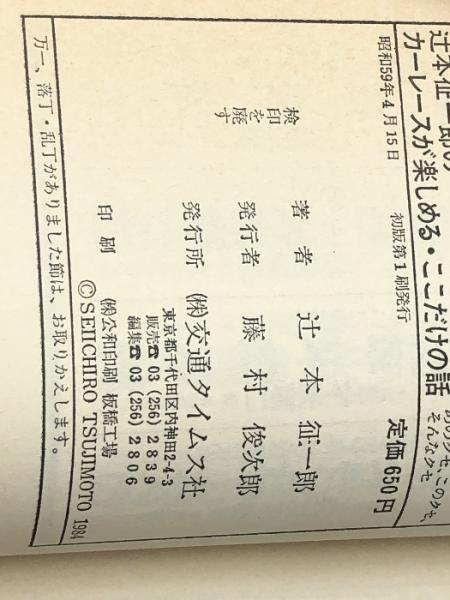 辻本征一郎の
カーレースが楽しめる・ここだけの話
あのクセ、このクセ、
そんなクセ
昭和59年4月15日 初版第1刷発行
定価650円
検印を廃す
著者 辻本征一郎
発行者 藤村俊次郎
発行所 ㈱交通タイムス社
東京都千代田区内神田2-4-3
販売☎03(256)2839
編集☎03(256)2806
印刷 ㈱公和印刷 板橋工場
©SEIICHIRO TSUJIMOTO 1984
万一、落丁・乱丁がありました節は、お取りかえします。